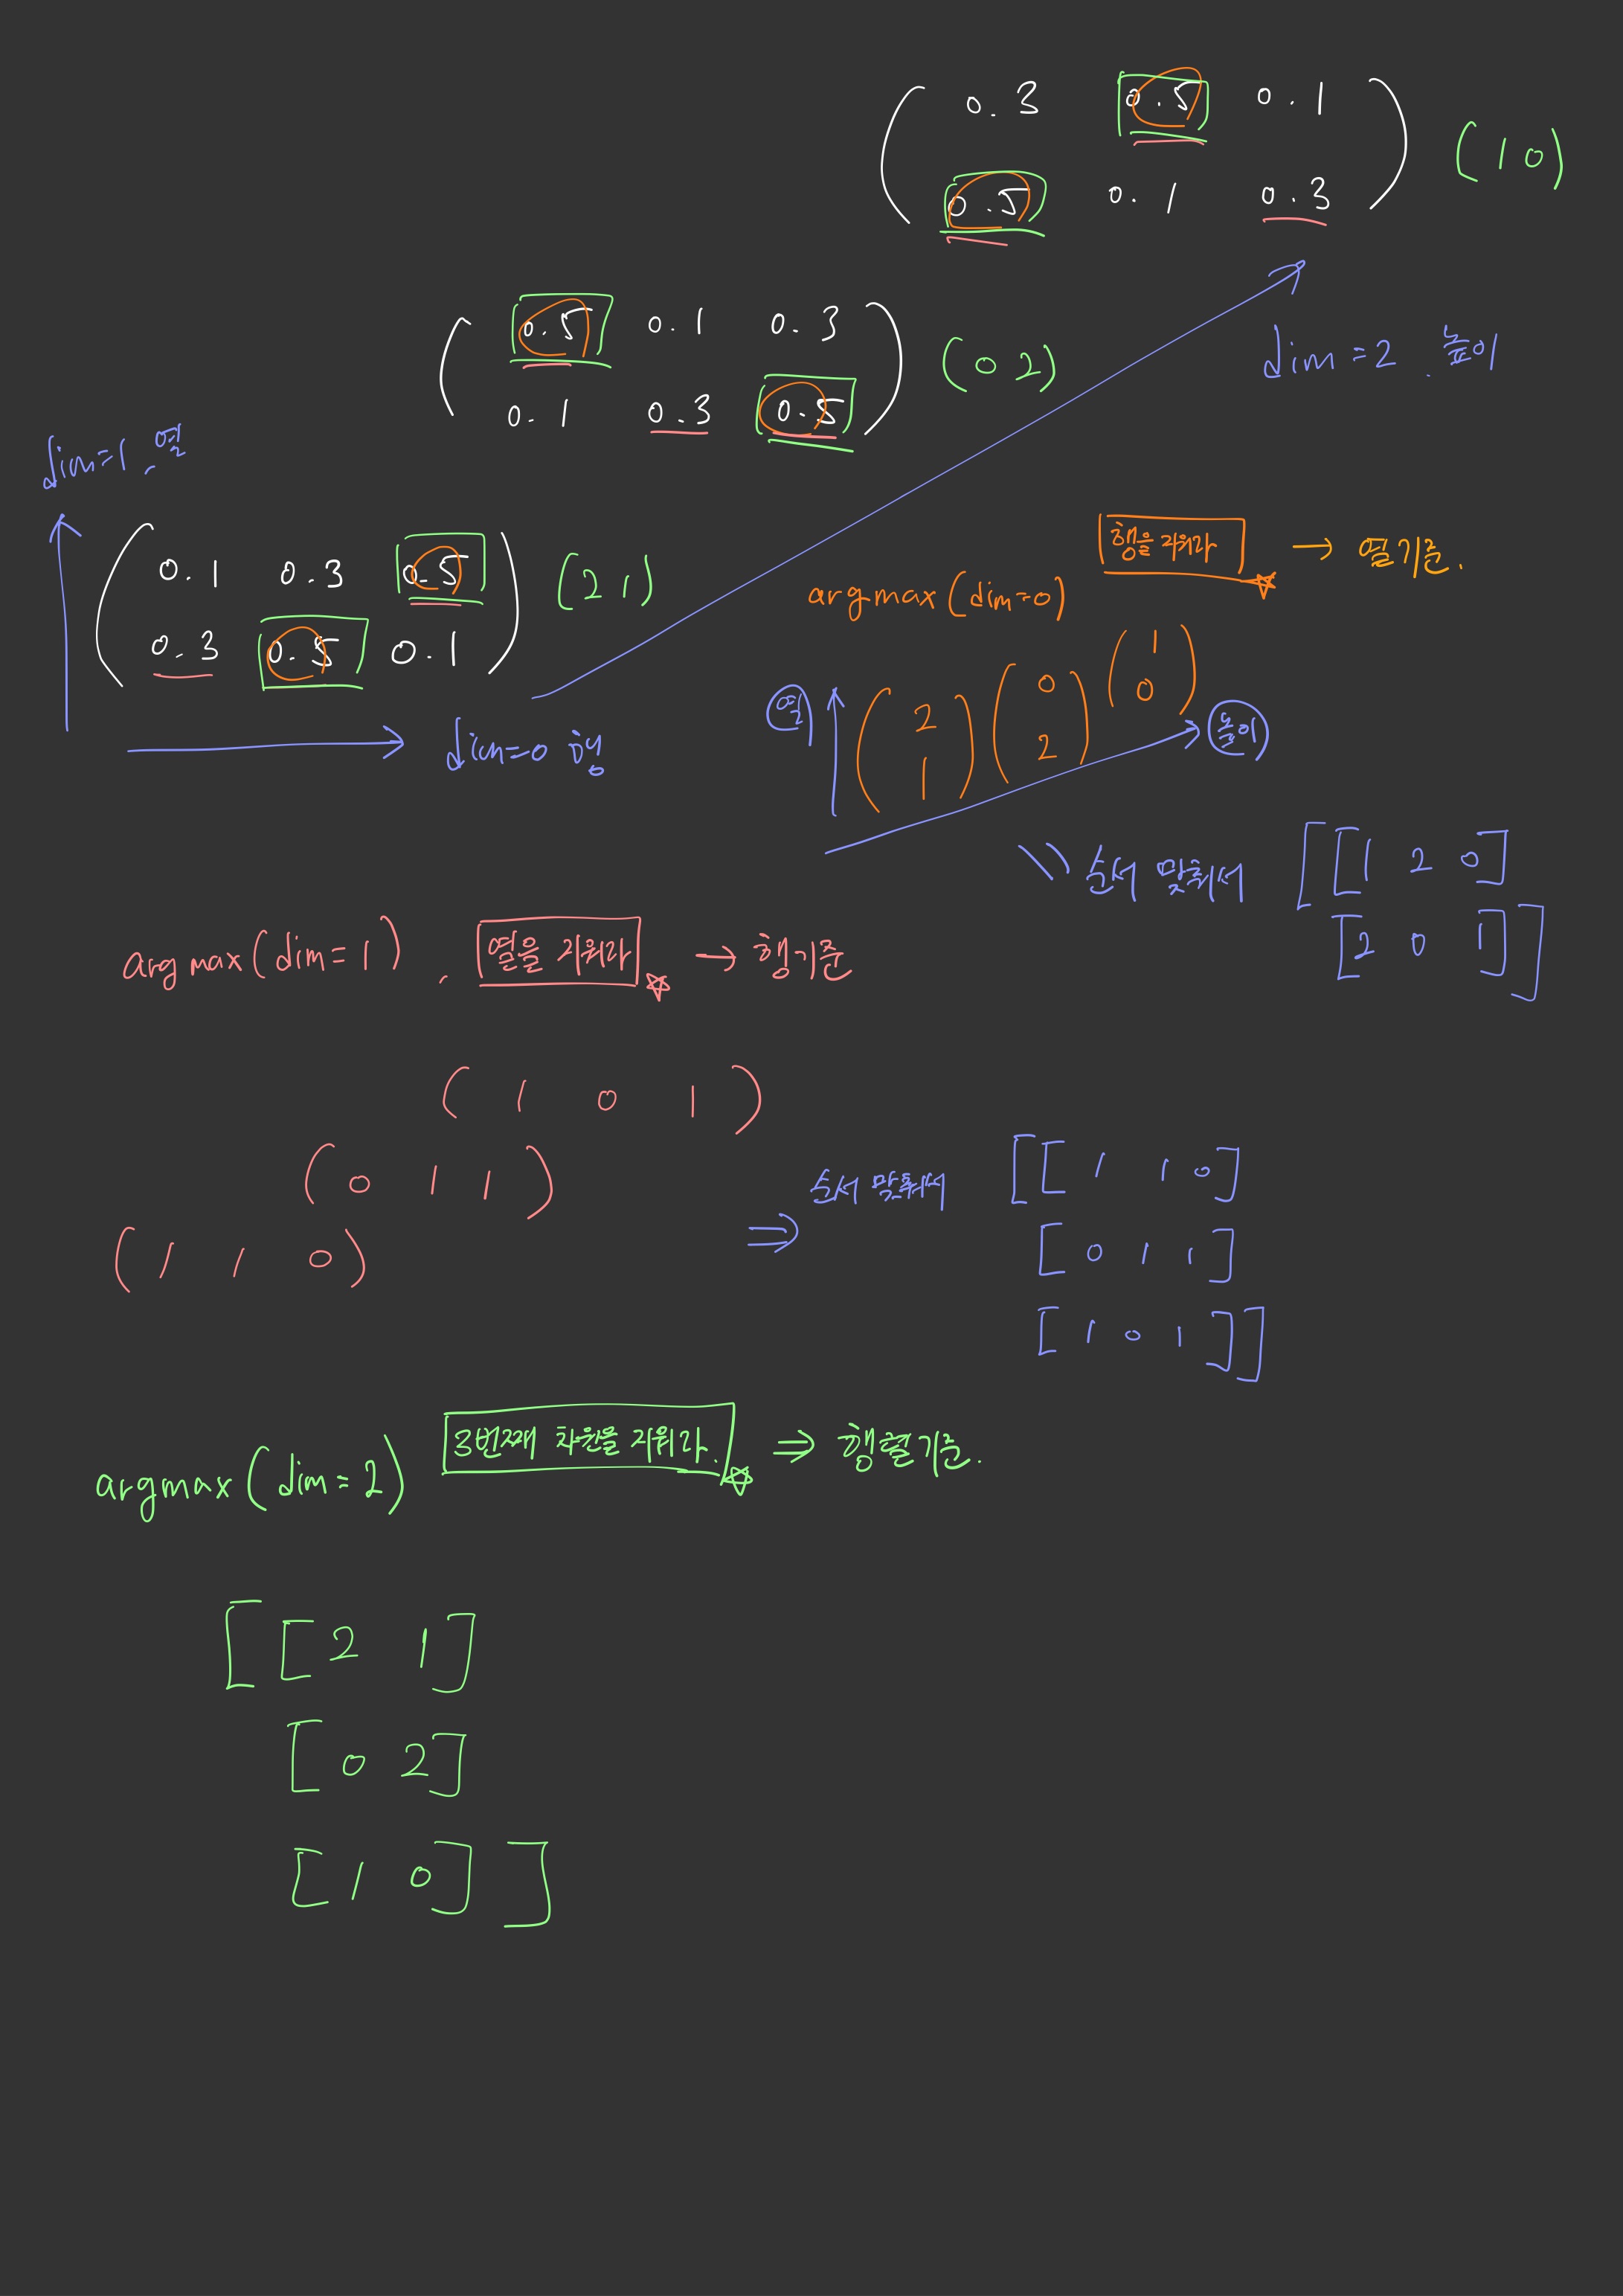 ( 0.3 0.5 0.1
0.5 0.1 0.3 ) (1 0)
( 0.5 0.1 0.3
0.1 0.3 0.5 ) (0 2)
dim=2. 높이
dim=1. 열
( 0.1 0.3 0.5
0.3 0.5 0.1 ) (2 1)
dim=0 행
argmax(dim=0) 행을 거쳐라 → 열기준.
열 (2 1) (0 2) (1 0) 높이
순서 맞춰서 [[1 2 0]
[2 0 1]]
argmax(dim=1). 열을 거쳐라 → 행기준
( 1 0 1 )
( 0 1 1 )
( 1 1 0 )
⇒ 순서 맞춰서 [[1 1 0]
[0 1 1]
[1 0 1]]
argmax(dim=2) 3번째 차원을 거쳐라. ⇒ 행렬기준.
[[2 1]
[0 2]
[1 0]]